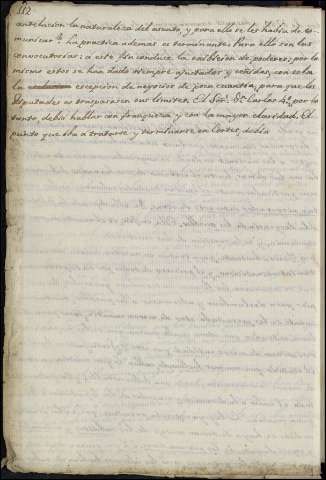 112
antelacion la naturaleza del asunto, y para ello se les havia de co-
municar. La practica ademas es terminante. Para ello son las
convocatorias; a este fin conduce la exibicion de poderes; por lo
mismo estos se han dado siempre ajustados y ceñidos, con sola
la escepcion de negocios de poca cuantia, para que los
Diputados no traspasasen sus limites. El Sor. Dn. Carlos 4º. por lo
tanto, debia hablar con franqueza y con la mayor claridad. El
punto que iba a tratarse y terminarse en Cortes debia